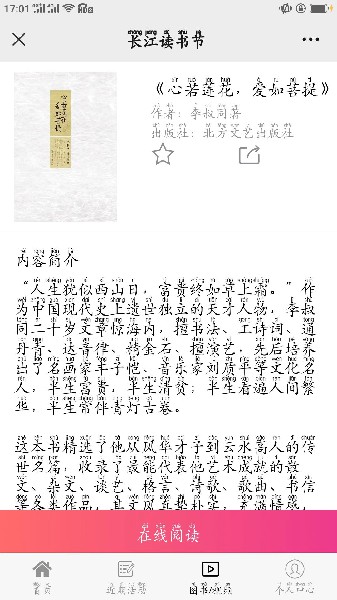 17:01
长江读书节
《心若莲花，爱如菩提》
作者：李叔同著
出版社：北方文艺出版社
内容简介
“人生犹似西山日，富贵终如草上霜。”作
为中国现代史上遗世独立的天才人物，李叔
同二十岁文章惊海内，擅书法、工诗词、通
丹青、达音律、精金石、擅演艺，先后培养
出了名画家丰子恺、音乐家刘质平等文化名
人，半生富贵，半生清贫；半生看遍人间繁
华，半生常伴青灯古卷。
这本书精选了他从风华才子到云水高人的传
世名篇，收录了最能代表他艺术成就的散
文、杂文、谈艺、格言、诗歌、歌曲、书信
在线阅读
首页
近期活动
图书/视频
个人中心